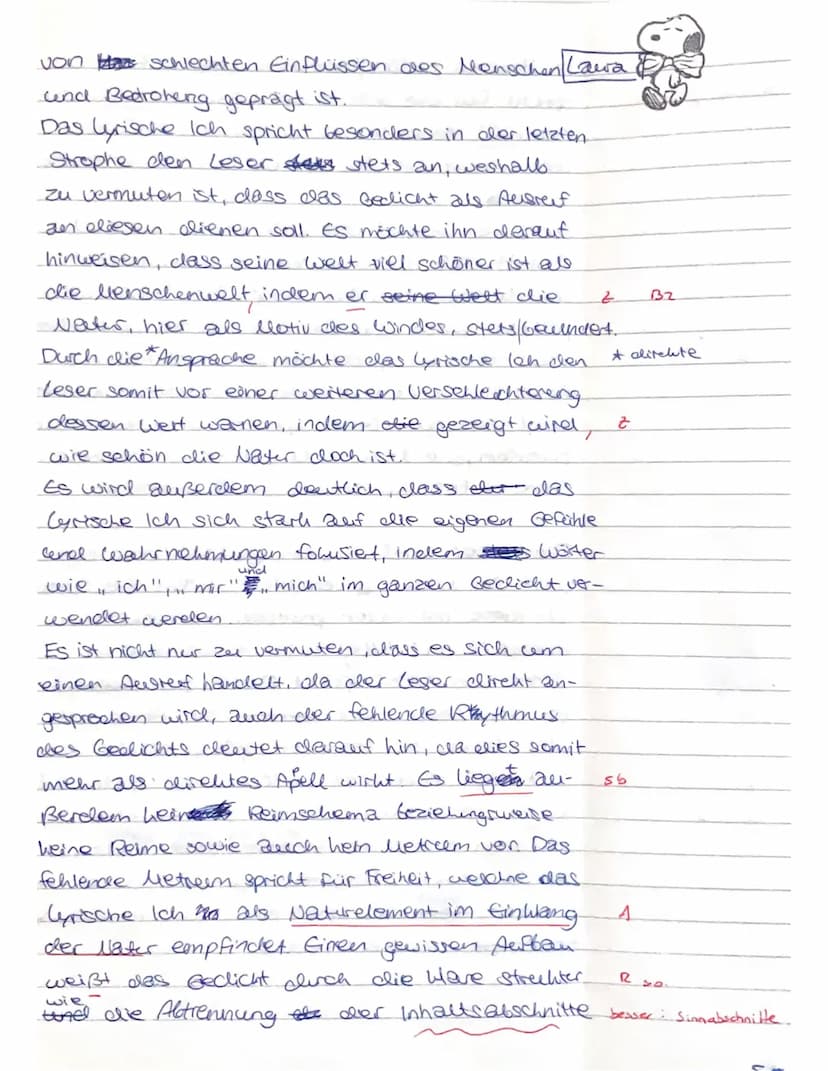 von schlechten Einflüssen des Menschen Laura
und Bedrohung geprägt ist.
Das lyrische Ich spricht besonders in der letzten
Strophe den Leser stets an, weshalb
zu vermuten ist, dass das Gedicht als Ausruf
an diesen dienen soll. Es möchte ihn darauf
hinweisen, dass seine Welt viel schöner ist als
die Menschenwelt, indem er seine Welt die Z BZ
Natur, hier als Motiv des Windes, stets bewundert.
Durch die *Ansprache möchte das lyrische Ich den * direkte
Leser somit vor einer weiteren Verschlechterung
dessen Wert warnen, indem die gezeigt wird, Z
wie schön die Natur doch ist.
Es wird außerdem deutlich, dass das
lyrische Ich sich stark auf die eigenen Gefühle
und Wahrnehmungen fokusiert, indem Wörter
wie „ich", „mir" und „mich" im ganzen Gedicht ver-
wendet werden.
Es ist nicht nur zu vermuten, dass es sich um
einen Ausruf handelt, da der Leser direkt an-
gesprochen wird, auch der fehlende Rhythmus
des Gedichts deutet darauf hin, da dies somit
mehr als direktes Apell wirkt. Es liegt au- Sb
ßerdem kein Reimschema beziehungsweise
keine Reime sowie auch kein Metrum vor. Das
fehlende Metrum spricht für Freiheit, welche das
lyrische Ich als Naturelement im Einklang A
der Natur empfindet. Einen gewissen Aufbau
weißt das Gedicht durch die klare Struktur R so.
wie die Abtrennung der Inhaltsabschnitte besser: Sinnabschnitte